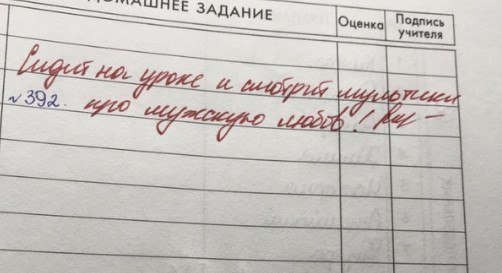 ДОМАШНЕЕ ЗАДАНИЕ
Оценка
Подпись учителя
Сидит на уроке и смотрит мультики
№ 392. про мужскую любовь!